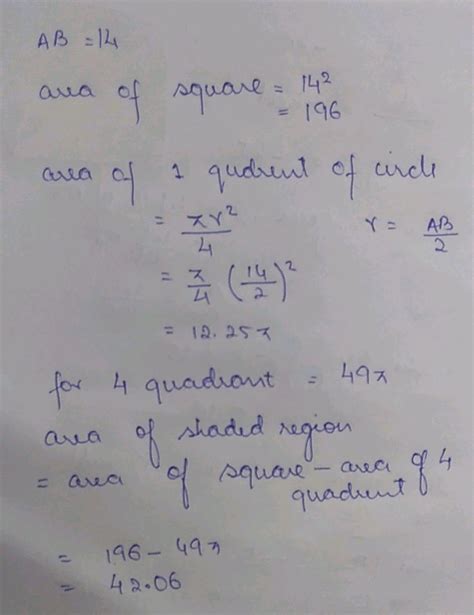 AB = 14
area of square = 14²
= 196
area of 1 qudrent of circle
= πr²/4    r = AB/2
= π/4 (14/2)²
= 12.25π
for 4 quadrant = 49π
area of shaded region
= area of square - area of 4
quadrent
= 196 - 49π
= 42.06